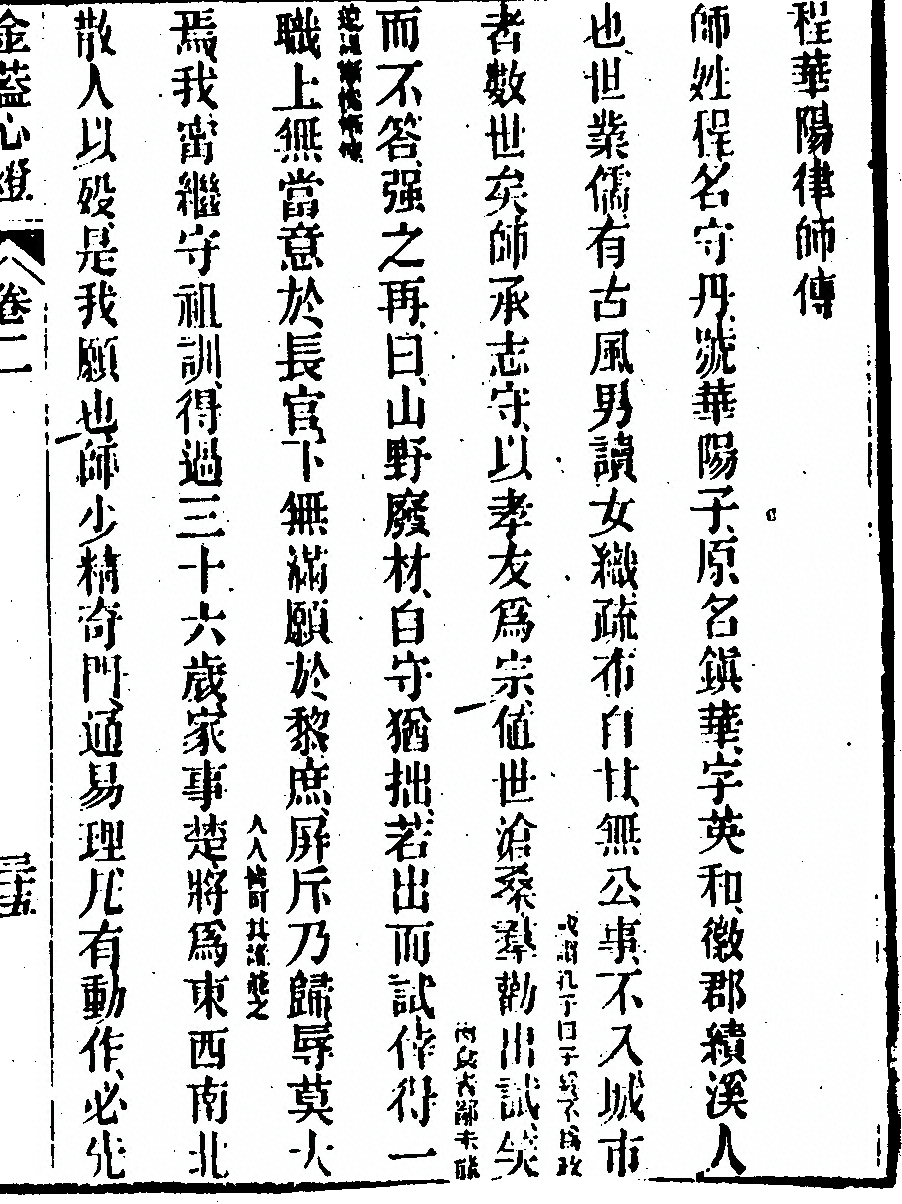 程華陽律師傳
師姓程名守丹號華陽子原名鎮華字英和徽郡績溪人
也世業儒有古風男讀女織疏布自甘無公事不入城市
或謂孔子曰子奚不為政
者數世矣師承志守以孝友為宗値世滄桑羣勸出試笑
而不答强之再曰山野廢材自守猶拙若出而試倖得一
職上無當意於長官下無滿願於黎庶屏斥乃歸辱莫大
人人
焉我甯繼守祖訓得過三十六歲家事楚將為東西南北
散人以歿是我願也師少精奇門通易理凡有動作必先
金蓋心燈
卷二
三十五